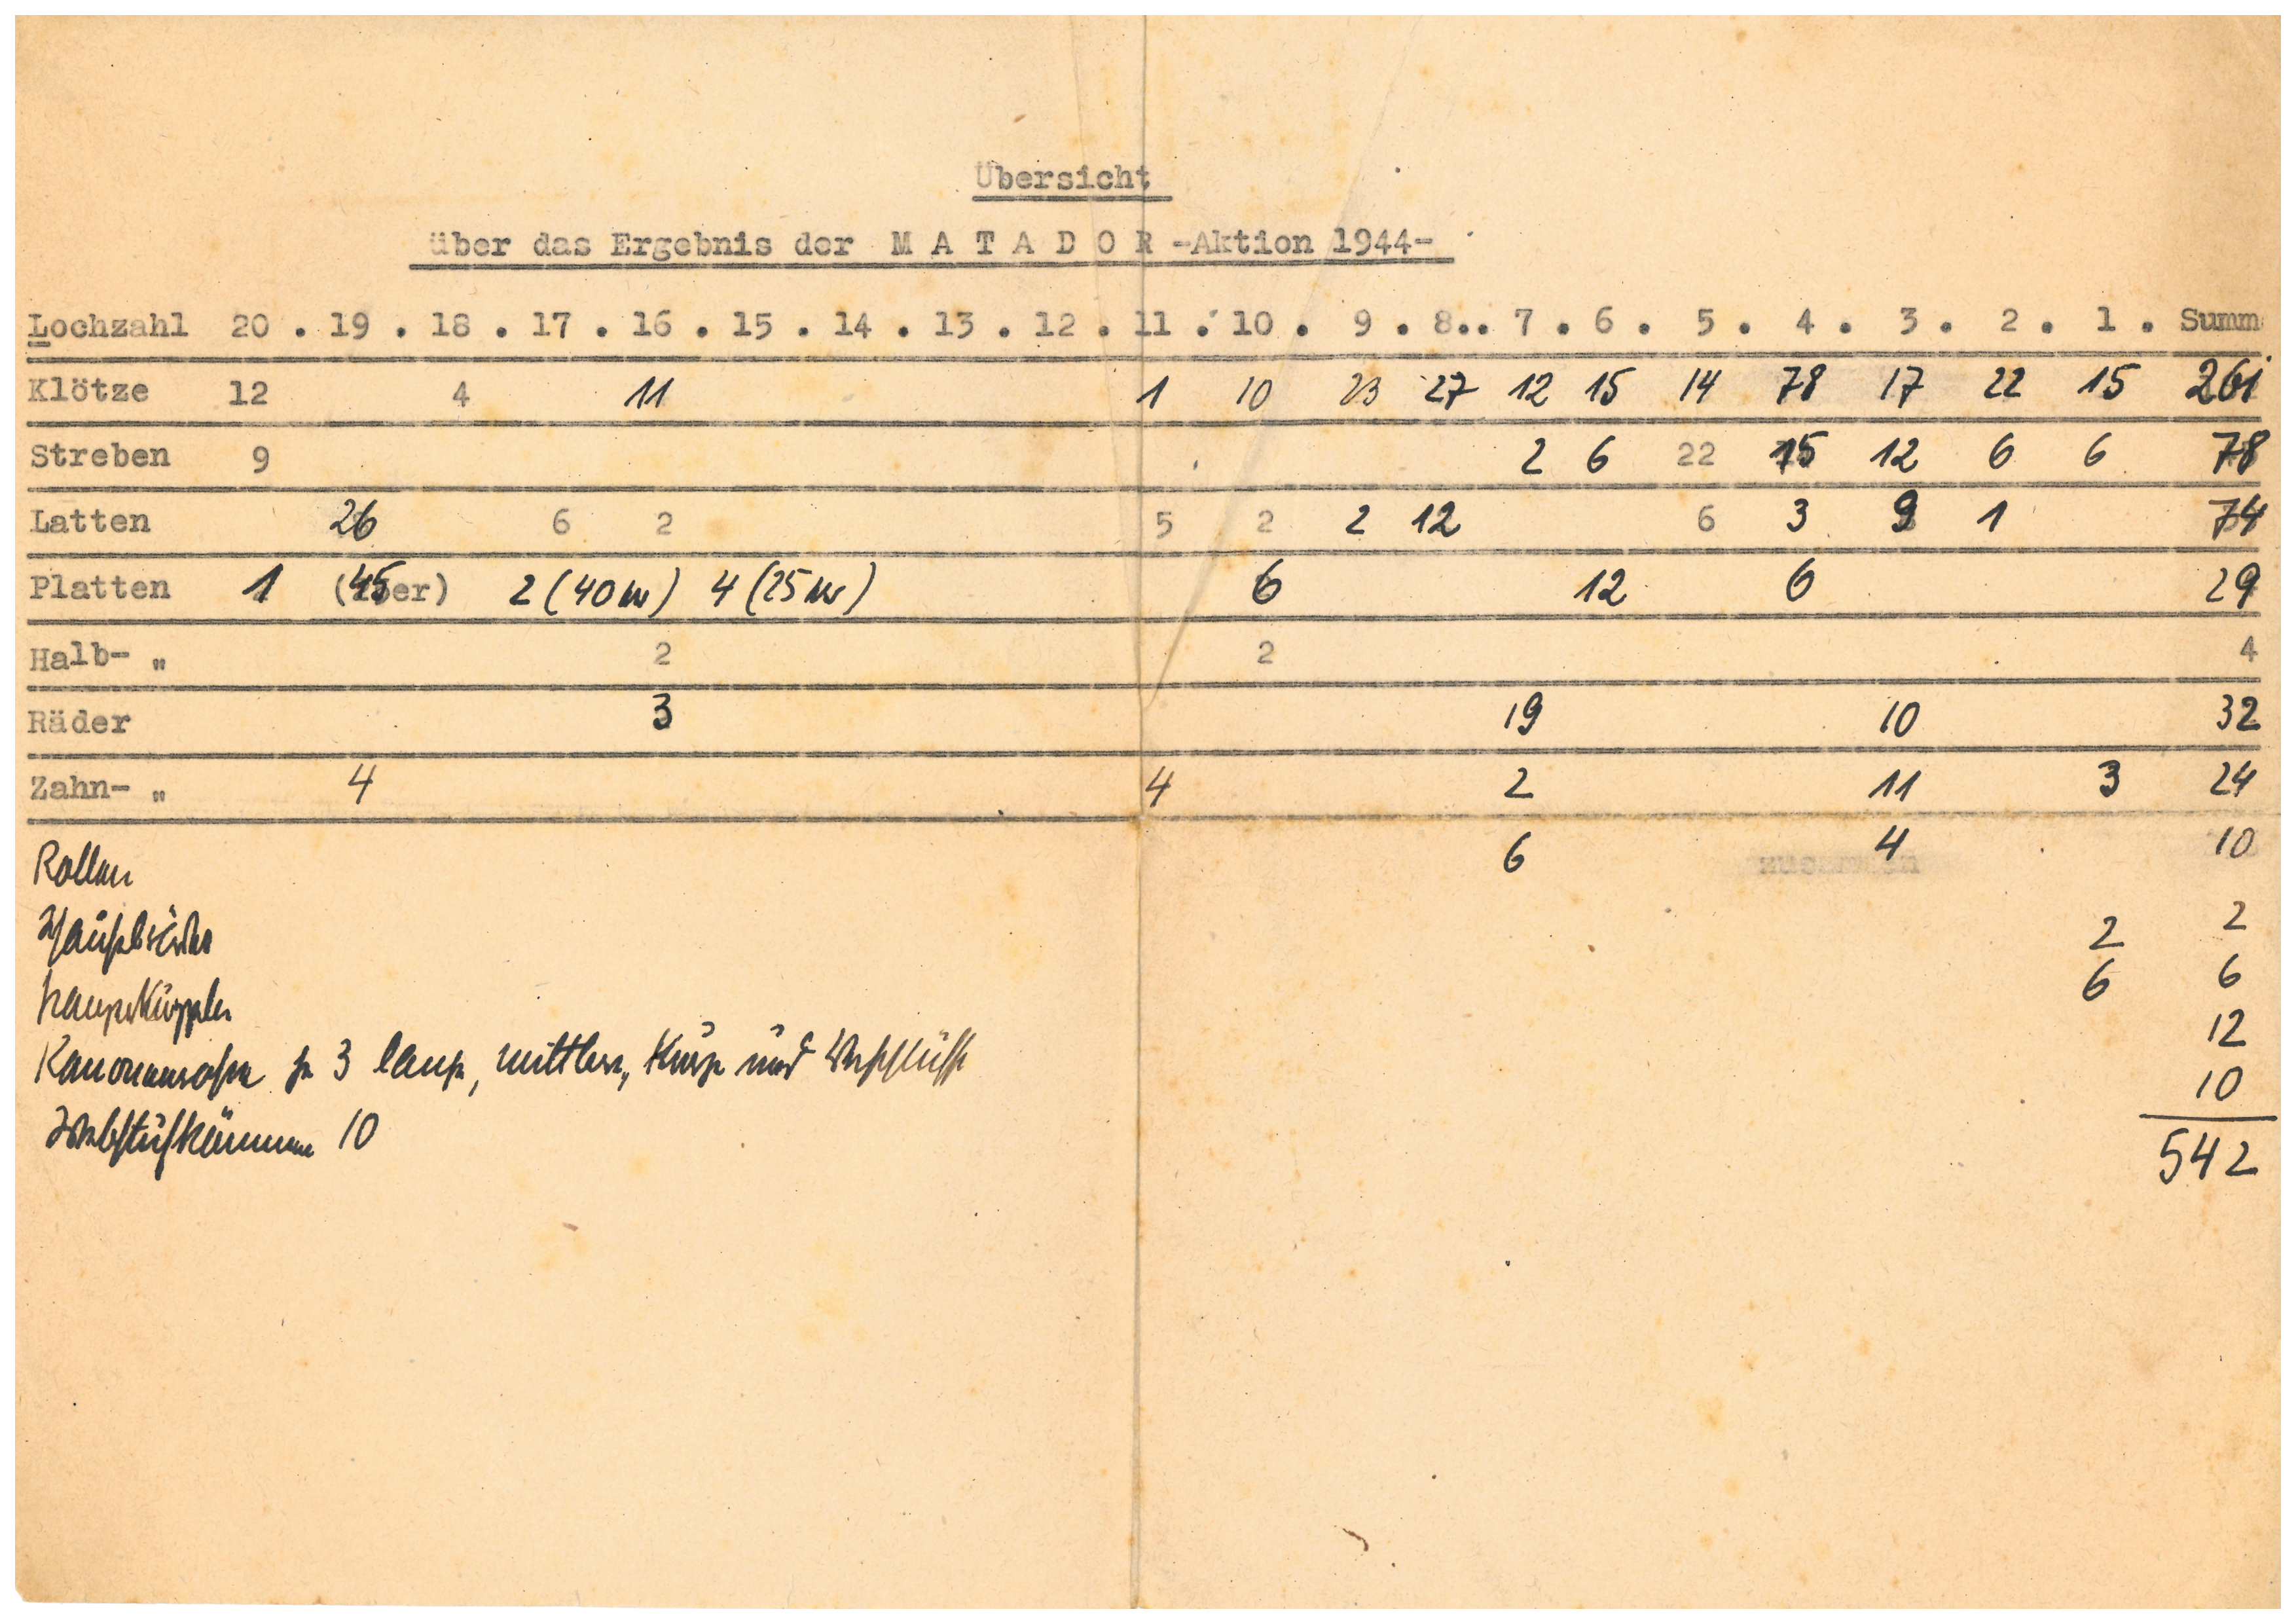 Übersicht
über das Ergebnis der M A T A D O R -Aktion 1944-
Lochzahl 20 . 19 . 18 . 17 . 16 . 15 . 14 . 13 . 12 . 11 . 10 . 9 . 8.. 7 . 6 . 5 . 4 . 3 . 2 . 1 . Summ
Klötze 12 4 11 1 10 23 27 12 15 14 78 17 22 15 261
Streben 9 2 6 22 15 12 6 6 78
Latten 26 6 2 5 2 2 12 6 3 9 1 74
Platten 1 (45er) 2 (40er) 4 (25er) 6 12 6 29
Halb- " 2 2 4
Räder 3 19 10 32
Zahn- " 4 4 2 11 3 24
Rollen 6 4 10
2 2
6 6
Kanonenrohre je 3 lange, mittlere, kurze und 12
10 10
542